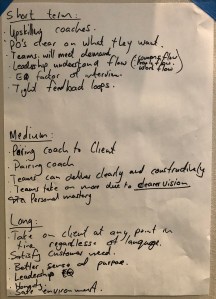 Short term:
· Upskilling coaches.
· PO's clear on what they want.
· Teams will meet demand.
· Leadership understand flow (
work flow
· EQ factor of interview.
· Tight feedback loops.
Medium:
· Pairing coach to Client
· Pairing coach
· Teams can deliver clearly and constructively
· Teams take on more due to clearer vision
Personal mastery
Long:
· Take on client at any point in
time regardless of language.
· Satisfy customer need.
· Better sense of purpose.
· Leadership
· Honesty
· Safe environment.